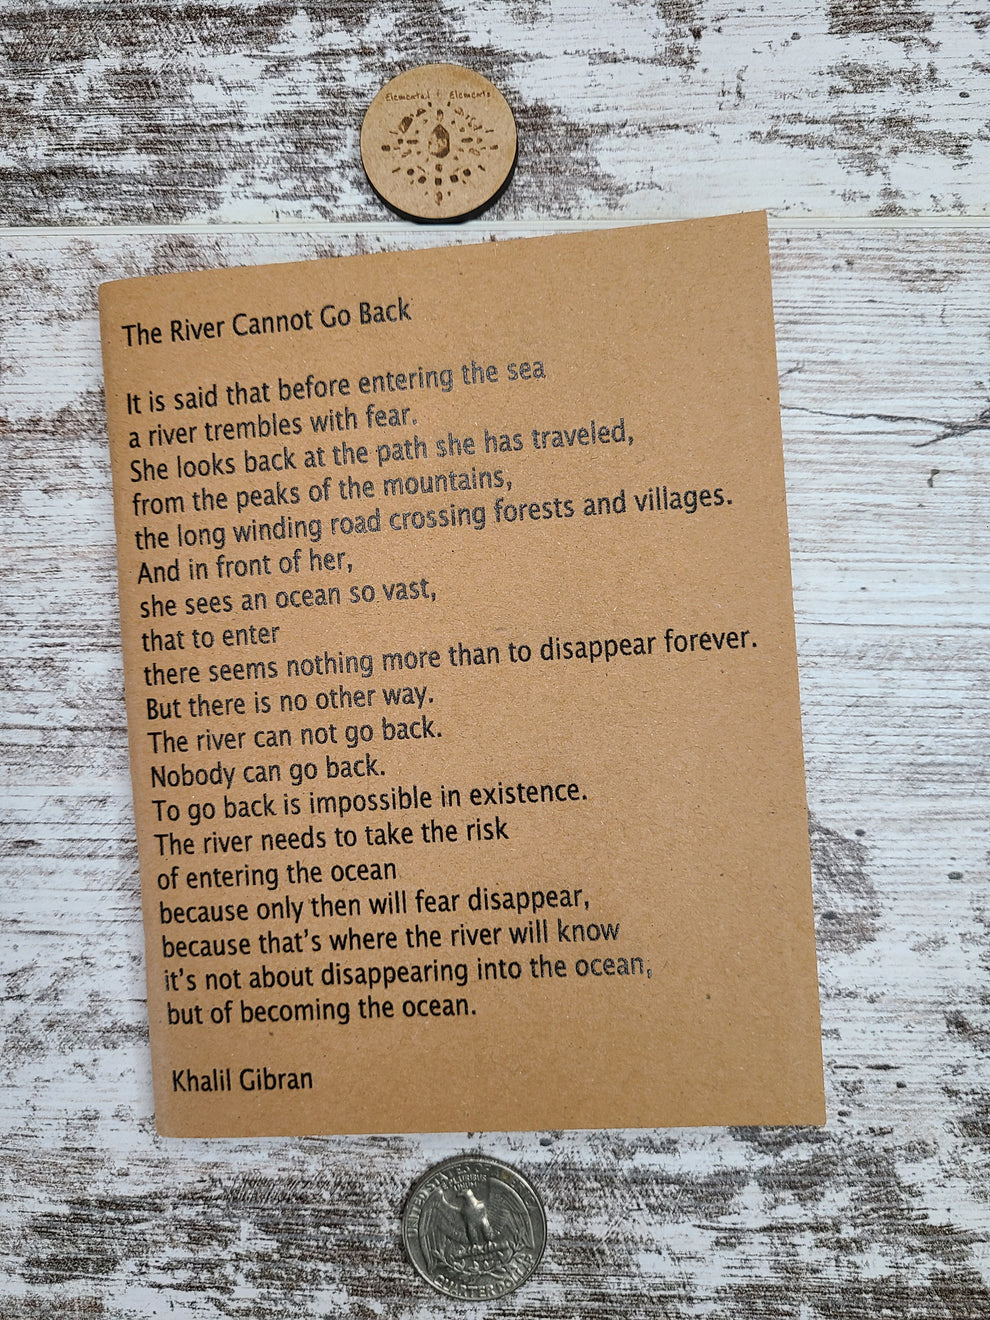 Elemental Elements
The River Cannot Go Back
It is said that before entering the sea
a river trembles with fear.
She looks back at the path she has traveled,
from the peaks of the mountains,
the long winding road crossing forests and villages.
And in front of her,
she sees an ocean so vast,
that to enter
there seems nothing more than to disappear forever.
But there is no other way.
The river can not go back.
Nobody can go back.
To go back is impossible in existence.
The river needs to take the risk
of entering the ocean
because only then will fear disappear,
because that's where the river will know
it's not about disappearing into the ocean,
but of becoming the ocean.
Khalil Gibran
UNITED STATES OF AMERICA
QUARTER DOLLAR